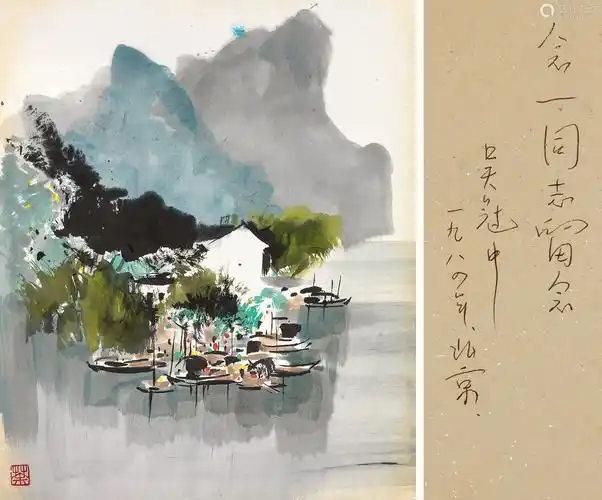 念一同志留念
吴冠中
一九八四年、北京、